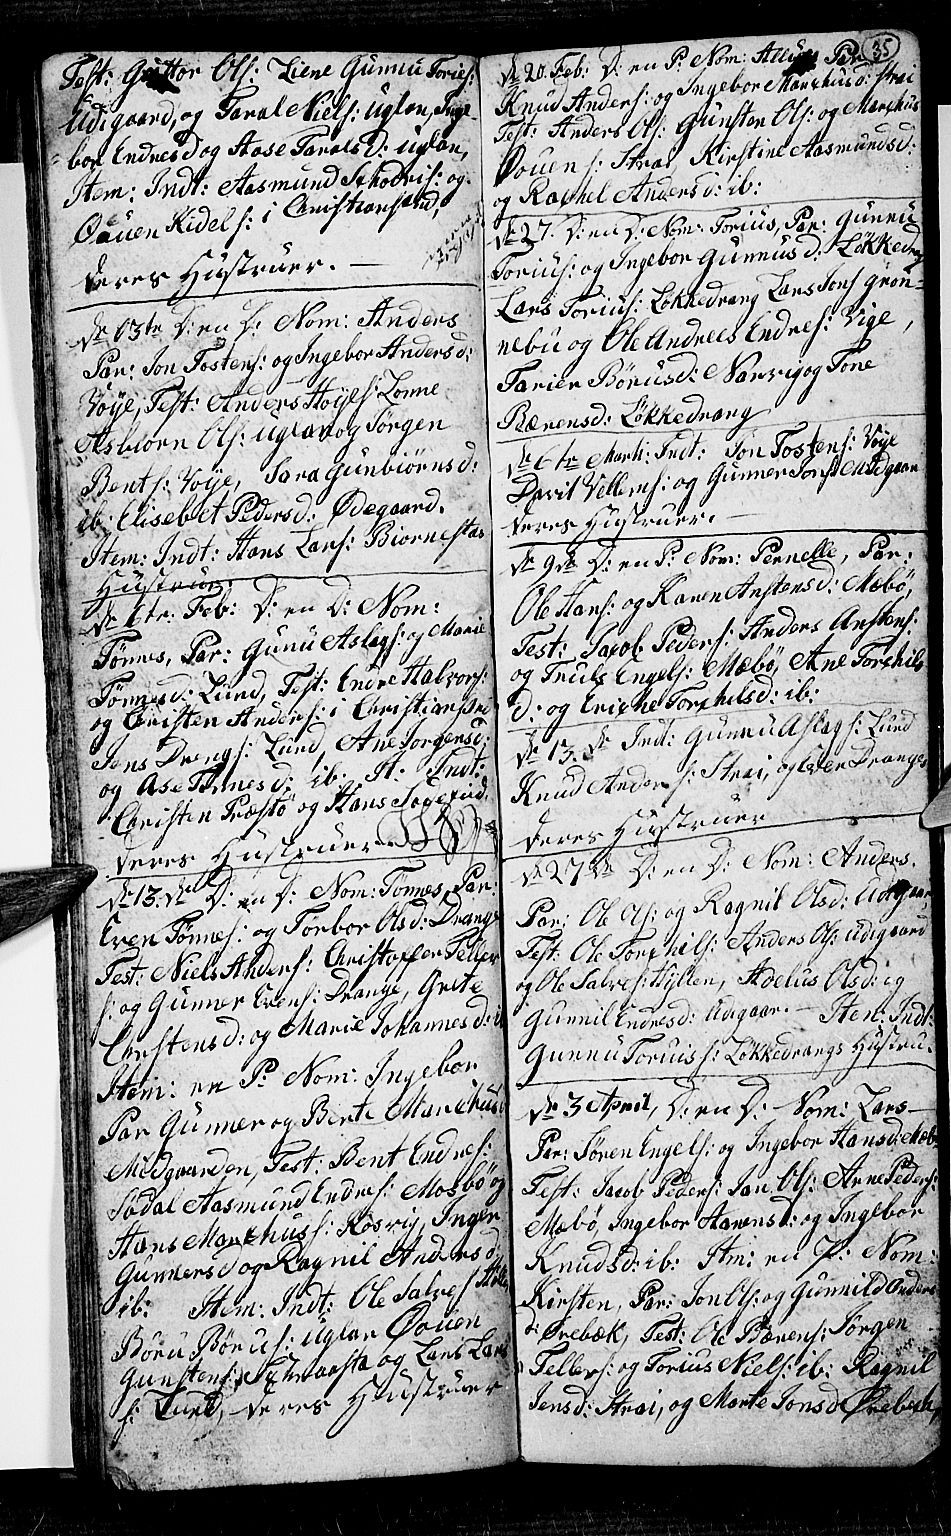 Test: Guttor Ols: Liene Gunnu Tories:
Udigaard, og Taral Niels: uglan, Inge-
bor Endresd og Aase Taralsd: uglan,
Item: Indt: Aasmund s: og
Øouen Kidels: i Christiansand,
deres Hustruer. —
D: en D: Nom: Anders
Par: Jon Tostens: og Ingebor Andersd:
Voÿe, Test: Anders Høÿes: Lonne
Asbiorn Ols: uglan og Jørgen
Bents: Voÿe, Sara Gunbiornsd:
ib: Elisebet Pedersd: Ødegaard.
Item: Indt: Hans Lars: Biornestas
Hustrue.
De 6te: Feb: D: en D: Nom:
Tønnes, Par: Gunu Aslags: og Marie
Tønnesd: Lund, Test: Endre Halvors:
og Christen Anders: i Christiansand
Jens Drengs: Lund, Ane Jorgensd:
og Ase Tønnesd: ib. It: Indt:
Christen Præstø og Hans
deres Hustruer.
De 13: de D: en D: Nom: Tønnes, Par:
Even Tønnes: og Torbor Olsd: Drange
Test: Niels Anders: Christoffer Teller
s: og Gunner Evens: Drange, Grete
Christensd: og Marie Johannesd: ib
Item: en P: Nom: Ingebor
Par Gunner og Berte Marchusd
Midgaarden, Test: Bent Endres:
Sødal Aasmund Endres: Mosbø og
Hans Marchus s: Kosvig, Inger
Gunnersd og Ragnil Andersd
ib: Item: Indt: Ole Salves:
Boru Børus: uglan Øouen
Gunstens: og Lars Lars
s: Lund, — deres Hustruer
35
De 20. Feb: D: en P: Nom: Par
Knud Anders: og Ingebor Marchusd: Strai
Test: Anders Ols: Gunsten Ols: og Marchus
Øouen s: Strai Kirstine Aasmundsd:
og Rachel Andersd: ib:
De 27. D: en D: Nom: Torius, Par: Gunnu
Torius: og Ingebor Gunnusd: Løkkedrang
Lars Torius: Løkkedrang Lars Jons grøn-
nebu og Ole Andreas Endres: Vige,
Tarier Børusd: Narvig og Tone
Bærensd: Løkkedrang
De 6te Marti: Indt: Jon Tostens: Voÿe
David Vellems: og Gunner Jons: Midgaar
deres Hustruer. —
De 9de D: en P: Nom: Pernelle, Par:
Ole Hans: og Karen Anstensd: Mæbø,
Test: Jacob Peders: Anders Anstens:
og Truls Engels: Mæbø, Ane Torchils
d: og Eriche Torchilsd: ib:
De 13. de Indt: Gunnu Aslags: Lund
Knud Anders: Strai, og Even Dranges
deres Hustruer
De 27de D: en D: Nom: Anders.
Par: Ole Ols: og Ragnil Olsd: Udigaar
Test: Ole Torchils: Anders Ols: udigaard
og Ole Salves: Hÿllen, Adelus Olsd: og
Gunnil Endresd: Udigaar. — Item: Indt:
Gunnu Toruis s: Løkkedrangs Hustru.
De 3 April, D: en D: Nom: Lars —
Par: Søren Engels: og Ingebor Hansd: Mæbø
Test: Jacob Peders: Jan Ols: Arne Peders:
Mæbø, Ingebor Harensd: og Ingebor
Knudsd: ib: Itm: en P: Nom:
Kirsten, Par: Jon Ols: og Gunnild Anders
d: Ørebæk, Test: Ole Bærens: Jørgen
Tellefs: og Torius Niels: ib: Ragnil
Jensd: Strai, og Marte Jonsd Ørebech,